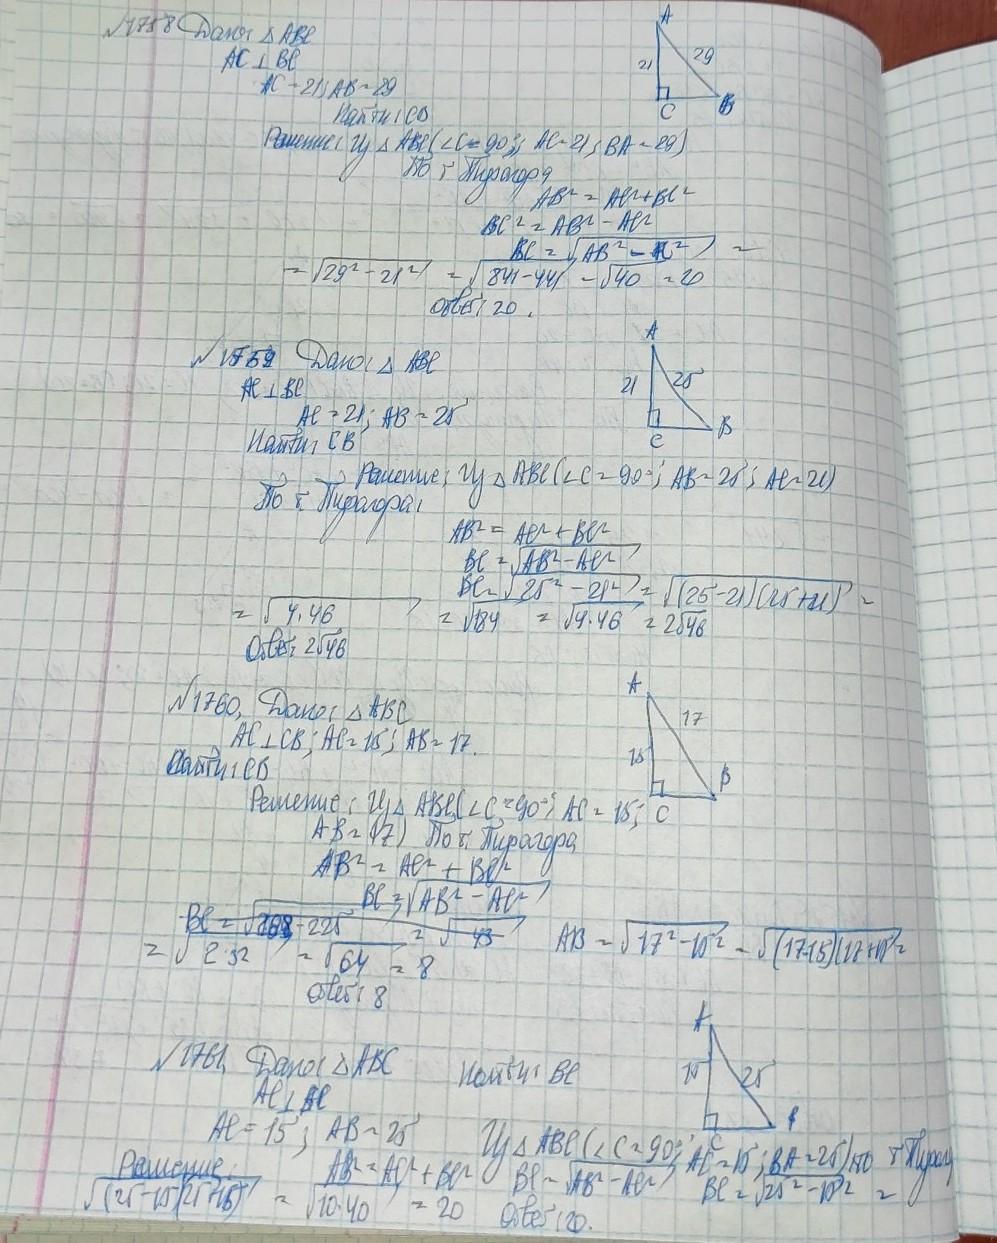 №1758 Дано: △ABC
AC ⊥ BC
AC = 21; AB = 29
Найти: CB
A
21
29
C
B
Решение: Из △ABC (∠C = 90°; AC = 21; BA = 29)
По т Пифагора
AB² = AC² + BC²
BC² = AB² - AC²
BC = √AB² - AC² =
= √29² - 21² = √841 - 441 = √40 = 20
Ответ: 20.
№1759 Дано: △ABC
AC ⊥ BC
AC = 21; AB = 25
Найти: CB
A
21
25
C
B
Решение: Из △ABC (∠C = 90°; AB = 25; AC = 21)
По т. Пифагора:
AB² = AC² + BC²
BC = √AB² - AC²
BC = √25² - 21² = √(25-21)(25+21) =
= √4.46 = √184 = √4.46 = 2√46
Ответ: 2√46
№1760. Дано: △ABC
AC ⊥ CB; AC = 15; AB = 17.
Найти: CB
A
17
15
B
C
Решение: Из △ABC (∠C = 90°; AC = 15;
AB = 17) По т. Пифагора
AB² = AC² + BC²
BC = √AB² - AC²
AB = √17² - 15² = √(17-15)(17+15) =
= √2.32 = √64 = 8
Ответ: 8
№1761. Дано: △ABC Найти: BC
AC = 15; AB = 25
A
15
25
C
Из △ABC (∠C = 90°; AC = 15; BA = 25) по т Пифаг
Решение: AB² = AC² + BC² BC = √AB² - AC² BC = √25² - 15² =
√(25-15)(25+15) = √10.40 = 20 Ответ: 20.